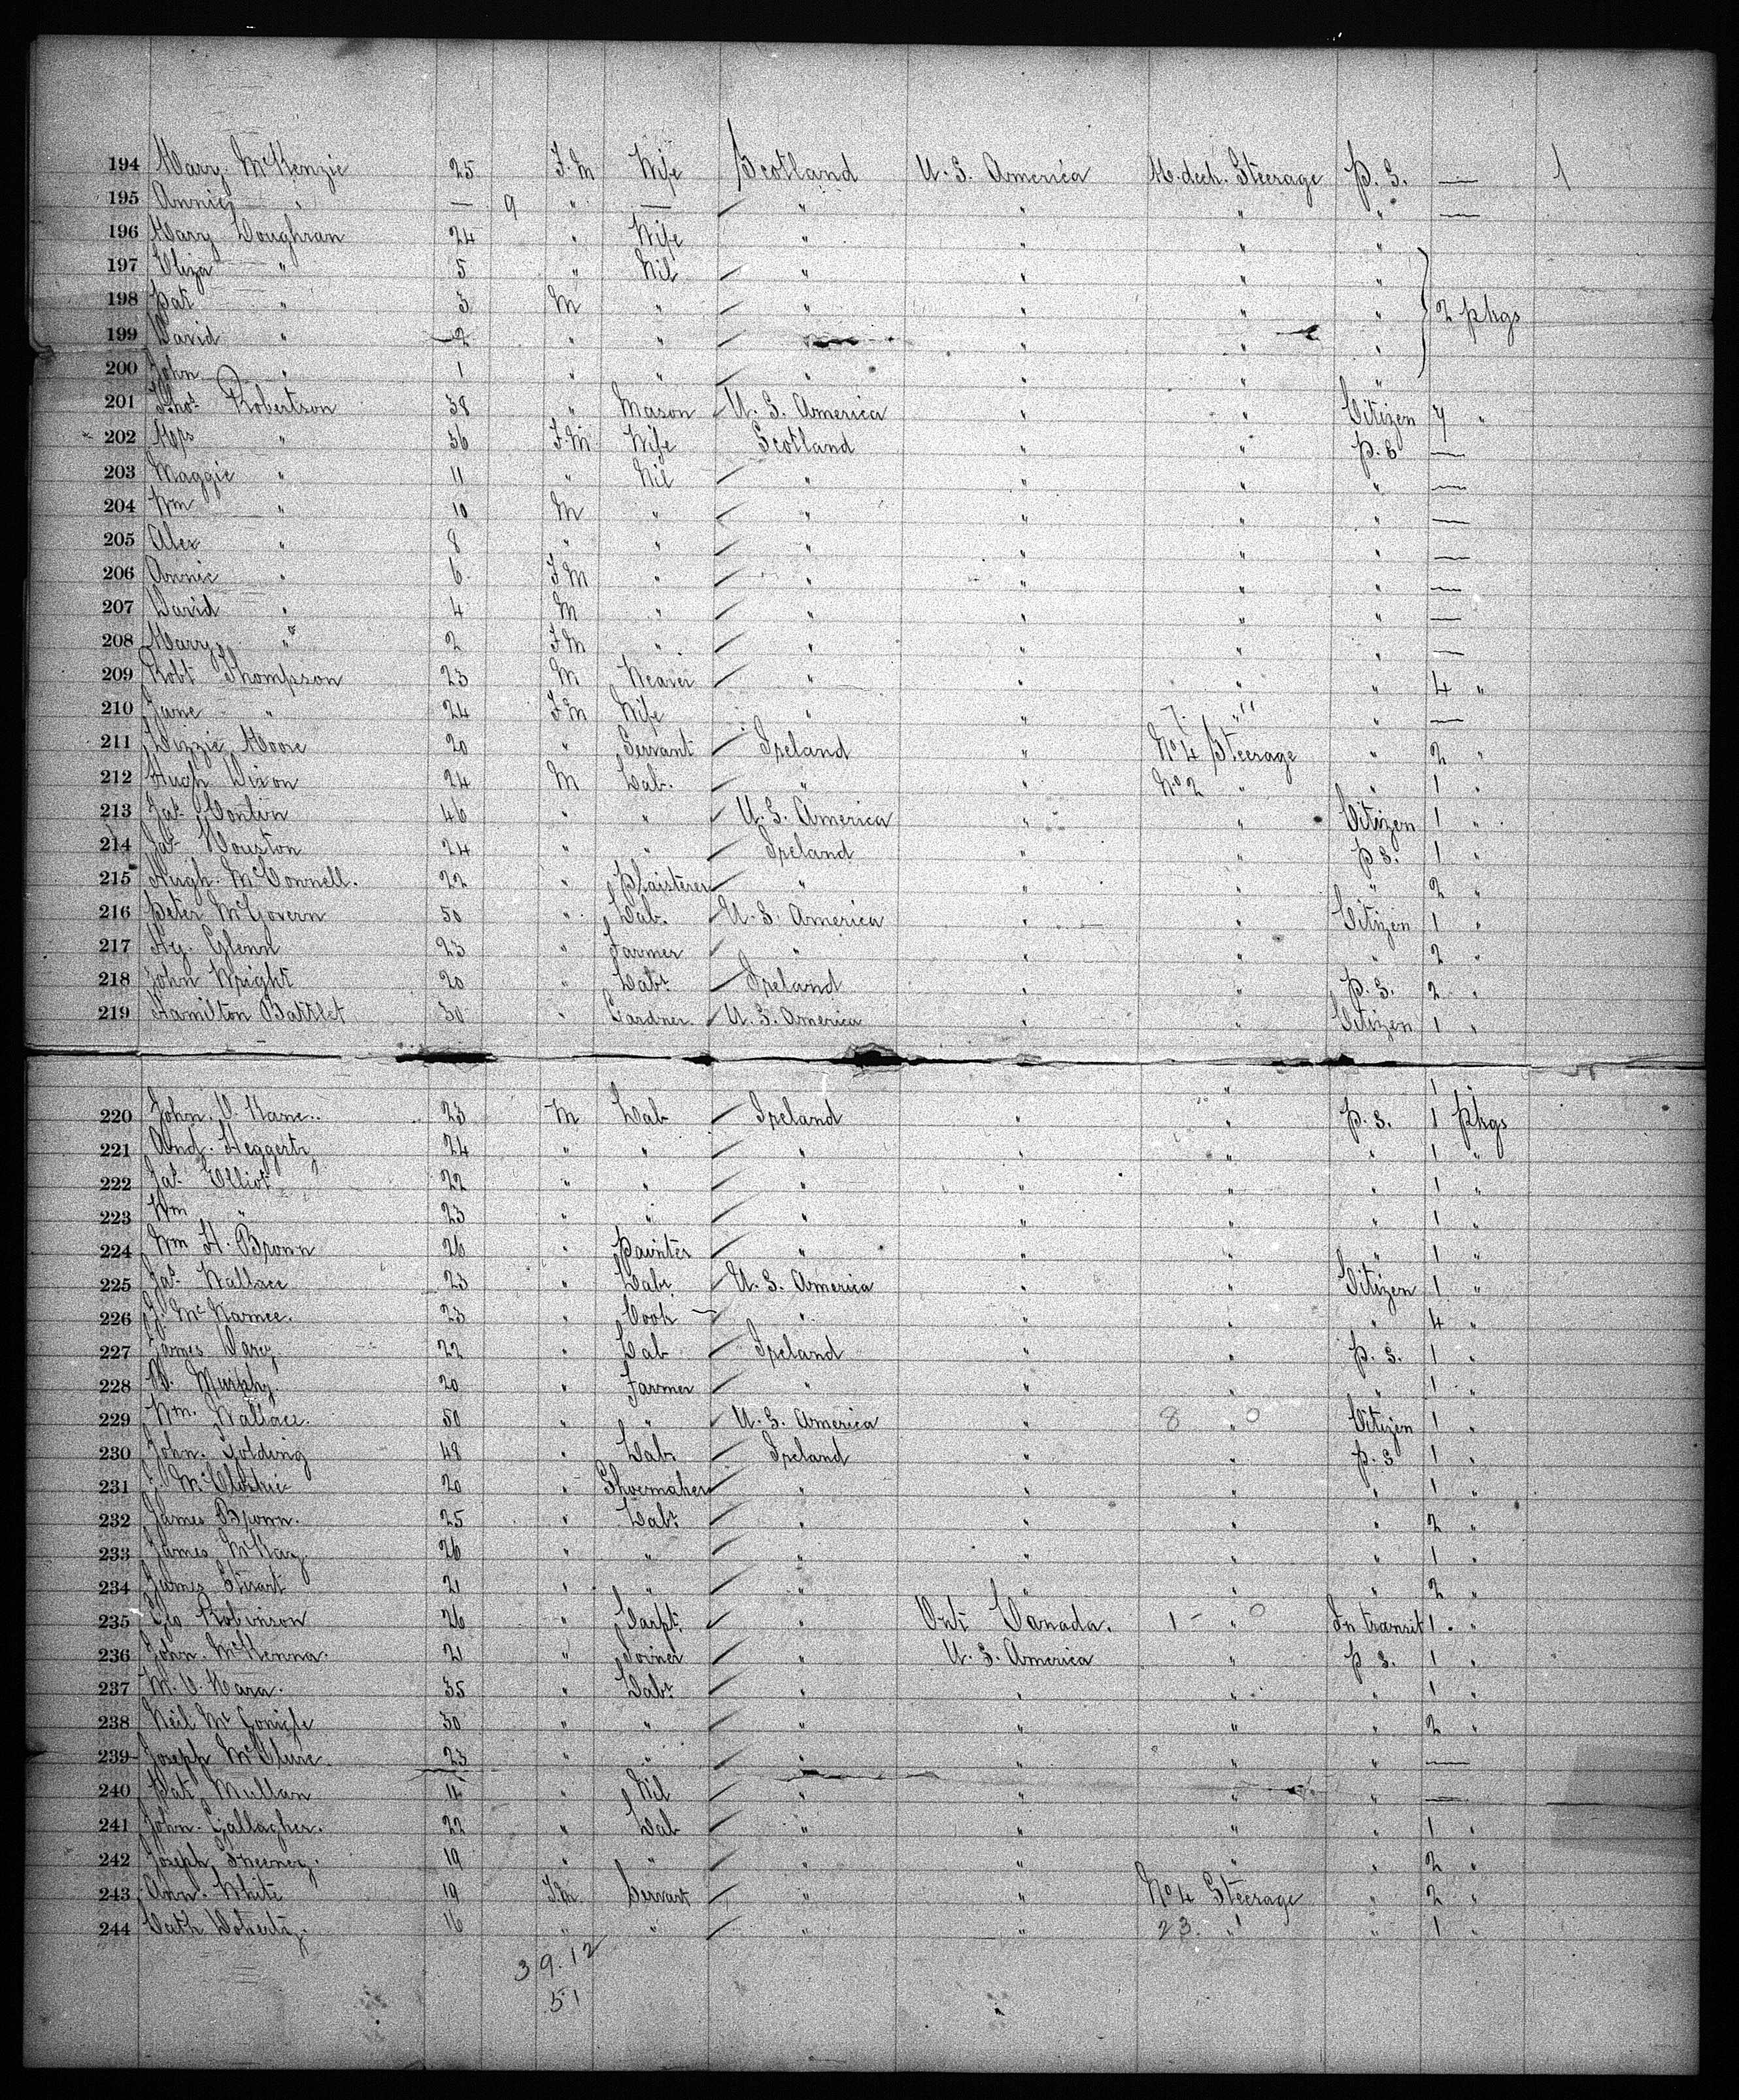 194 Mary McKenzie 25 F.M Wife Scotland U.S. America M. deck. Steerage P.S. — 1
195 Annie " — 9 " — " " " " —
196 Mary Loughran 24 " Wife " " " "
197 Eliza " 5 " Nil " " " "
198 Pat " 3 M " " " " " 2 pkgs
199 David " 2 " " " " " "
200 John " 1 " " " " " "
201 Thos Robertson 38 " Mason U.S. America " " Citizen 7 "
202 Mrs " 36 F.M Wife Scotland " " P.S —
203 Maggie " 11 " Nil " " " " —
204 Wm " 10 M " " " " " —
205 Alex " 8 " " " " " " —
206 Annie " 6 F.M " " " " " —
207 David " 4 M " " " " " —
208 Mary " 2 F.M " " " " " —
209 Robt Thompson 23 M Weaver " " " " 4 "
210 Jane " 24 F.M Wife " " 7. " " —
211 Lizzie Moore 20 " Servant Ireland " No 4 Steerage " 2 "
212 Hugh Dixon 24 M Lab. " " No 2 " " 1 "
213 Jas. Conlin 46 " " U.S. America " " Citizen 1 "
214 Jas. Houston 24 " " Ireland " " P.S. 1 "
215 Hugh. McConnell. 22 " Plaisterer " " " " 2 "
216 Peter McGovern 50 " Lab. U.S. America " " Citizen 1 "
217 Hy. Glenn 23 " Farmer " " " " 2 "
218 John Wright 20 " Labr Ireland " " P.S. 2 "
219 Hamilton Battlet 30 " Gardner. U.S. America " " Citizen 1 "
" 1 "
220 John. O. Kane.. 23 M Lab Ireland " " P.S. 1 pkgs
221 And. Heggerty 24 " " " " " " 1 "
222 Jas. Elliot 22 " " " " " " 1 "
223 Wm " 23 " " " " " " 1 "
224 Wm H. Brown 26 " Painter " " " " 1 "
225 Jas. Wallace 23 " Labr U.S. America " " Citizen 1 "
226 McNamee. 23 " Cook — " " " " 4 "
227 James Darcy. 22 " Lab Ireland " " P.S. 1 "
228 Murphy. 20 " Farmer " " " " 1 "
229 Wm. Wallace. 50 " " U.S. America " 8 " 0 Citizen 1 "
230 John. Golding 48 " Labr Ireland " " P.S 1 "
231 McCloskie 20 " Shoemaker " " " " 1 "
232 James Brown. 25 " Labr " " " " 2 "
233 James McKay. 26 " " " " " " 1 "
234 James Stewart 21 " " " " " " 2 "
235 Geo Robinson 26 " Carpt. " Ont Canada. 1 - " 0 In transit 1. "
236 John. McKenna. 21 " Joiner " U.S. America " P.S. 1 "
237 M. O. Hara. 35 " Labr " " " " 1 "
238 Neil McGonigle 30 " " " " " " 2 "
239 Joseph McClure. 23 " " " " " " —
240 Pat Mullan " Nil " " " " —
241 John. Gallagher. 22 " Lab " " " " 1 "
242 Joseph Sweeney. 19 " " " " " " 2 "
243 Ann. White 19 F.M Servant " " No 4 Steerage " 2 "
244 Cath Doherty. 16 " " " " 23. " " 1 "
39.12
51